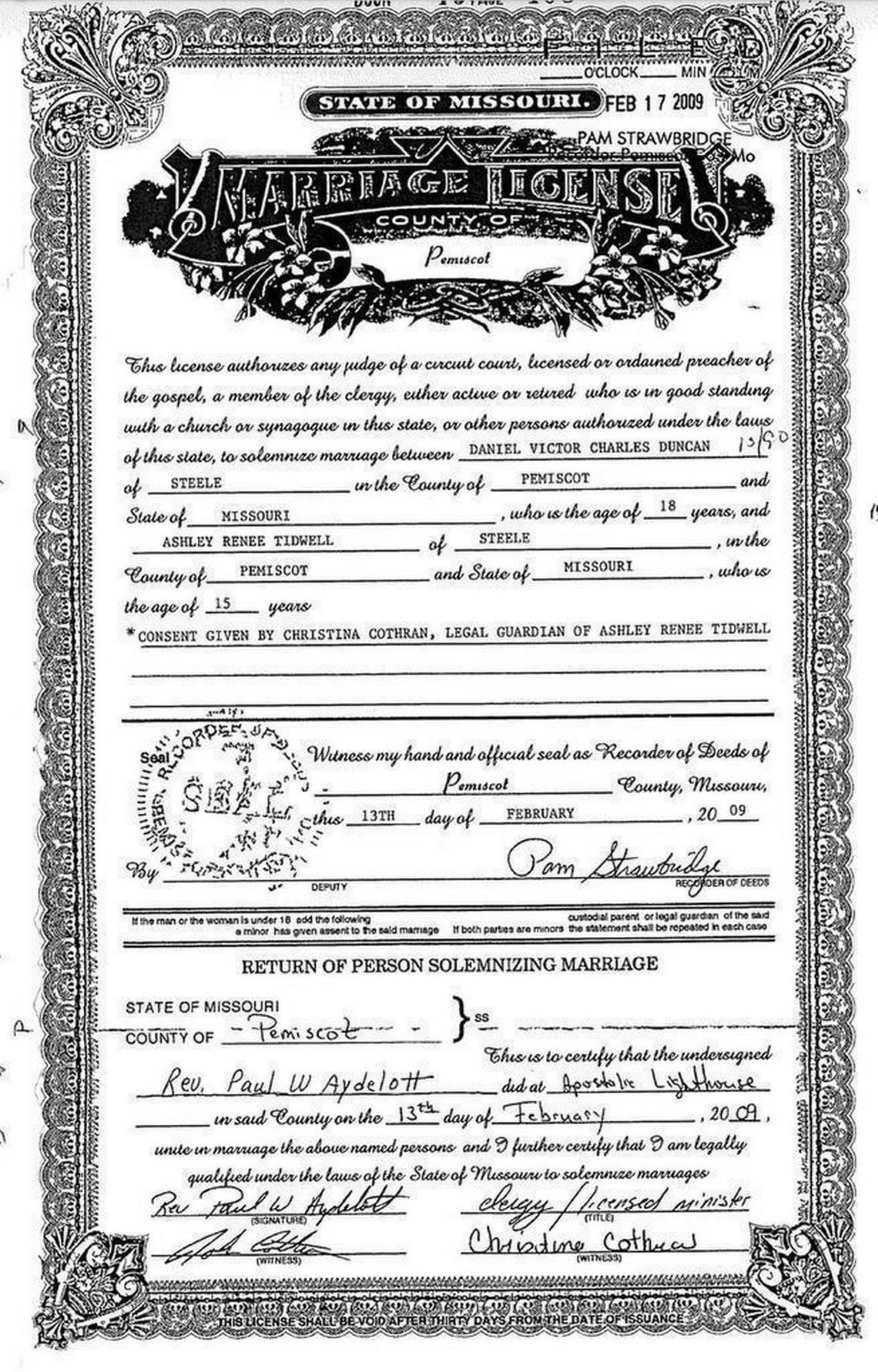 O'CLOCK MIN
STATE OF MISSOURI. FEB 17 2009
PAM STRAWBRIDGE
Mo
MARRIAGE LICENSE
COUNTY OF
Pemiscot
This license authorizes any judge of a circuit court, licensed or ordained preacher of
the gospel, a member of the clergy, either active or retired who is in good standing
with a church or synagogue in this state, or other persons authorized under the laws
of this state, to solemnize marriage between DANIEL VICTOR CHARLES DUNCAN
of STEELE in the County of PEMISCOT and
State of MISSOURI, who is the age of 18 years, and
ASHLEY RENEE TIDWELL of STEELE, in the
County of PEMISCOT and State of MISSOURI, who is
the age of 15 years
*CONSENT GIVEN BY CHRISTINA COTHRAN, LEGAL GUARDIAN OF ASHLEY RENEE TIDWELL
Seal
Witness my hand and official seal as Recorder of Deeds of
Pemiscot County, Missouri,
this 13TH day of FEBRUARY, 20 09
By Pam Strawbridge
DEPUTY RECORDER OF DEEDS
If the man or the woman is under 18 add the following custodial parent or legal guardian of the said
a minor has given assent to the said marriage If both parties are minors the statement shall be repeated in each case
RETURN OF PERSON SOLEMNIZING MARRIAGE
STATE OF MISSOURI
COUNTY OF Pemiscot } SS
This is to certify that the undersigned
Rev. Paul W Aydelott did at Apostolic Lighthouse
in said County on the 13th day of February, 20 09,
unite in marriage the above named persons and I further certify that I am legally
qualified under the laws of the State of Missouri to solemnize marriages
Rev Paul W Aydelott clergy / licensed minister
(SIGNATURE) (TITLE)
Christina Cothran
(WITNESS) (WITNESS)
THIS LICENSE SHALL BE VOID AFTER THIRTY DAYS FROM THE DATE OF ISSUANCE